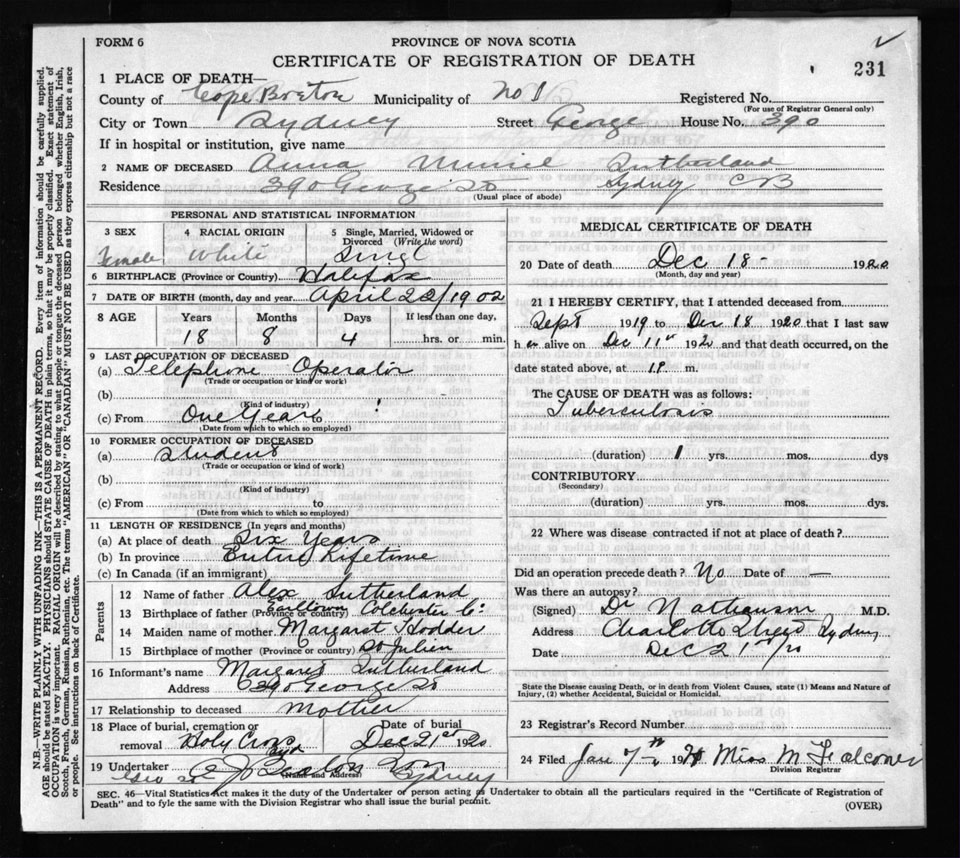 FORM 6
PROVINCE OF NOVA SCOTIA
CERTIFICATE OF REGISTRATION OF DEATH
231
1 PLACE OF DEATH—
County of Cape Breton Municipality of No 1 Registered No.
(For use of Registrar General only)
City or Town Sydney Street George House No. 390
If in hospital or institution, give name
2 NAME OF DECEASED Anna Sutherland
Residence 390 George St Sydney CB
(Usual place of abode)
PERSONAL AND STATISTICAL INFORMATION
3 SEX 4 RACIAL ORIGIN 5 Single, Married, Widowed or
Divorced (Write the word)
Female White Singl
6 BIRTHPLACE (Province or Country) Halifax
7 DATE OF BIRTH (month, day and year April 22/1902
8 AGE Years Months Days If less than one day,
18 8 4 hrs. or min.
9 LAST OCCUPATION OF DECEASED
(a) Telephone Operator
(Trade or occupation or kind of work)
(b)
(Kind of industry)
(c) From One Year to
(Date from which to which so employed)
10 FORMER OCCUPATION OF DECEASED
(a) Student
(Trade or occupation or kind of work)
(b)
(Kind of industry)
(c) From to
(Date from which to which so employed)
11 LENGTH OF RESIDENCE (In years and months)
(a) At place of death Six Years
(b) In province Entire Lifetime
(c) In Canada (if an immigrant)
Parents
12 Name of father Alex Sutherland
13 Birthplace of father (Province or country) Earltown Colchester Co.
14 Maiden name of mother Margaret Hodder
15 Birthplace of mother (Province or country) St Julien
16 Informant's name Margaret Sutherland
Address 390 George St
17 Relationship to deceased Mother
18 Place of burial, cremation or Date of burial
removal Holy Cross Syd Dec 21st 1920
19 Undertaker Sydney
(Name and Address)
MEDICAL CERTIFICATE OF DEATH
20 Date of death Dec 18 - 1920
(Month, day and year)
21 I HEREBY CERTIFY, that I attended deceased from
Sept 1919 to Dec 18 1920 that I last saw
h er alive on Dec 11th 192 and that death occurred, on the
date stated above, at 1 P. m.
The CAUSE OF DEATH was as follows:
Tuberculosis
(duration) 1 yrs. mos. dys
CONTRIBUTORY
(Secondary)
(duration) yrs. mos. dys.
22 Where was disease contracted if not at place of death?
Did an operation precede death? No Date of —
Was there an autopsy?
(Signed) Dr Nathanson M.D.
Address Charlotte Street Sydney
Date Dec 21st/20
State the Disease causing Death, or in death from Violent Causes, state (1) Means and Nature of
Injury, (2) whether Accidental, Suicidal or Homicidal.
23 Registrar's Record Number
24 Filed Jan 7th 192 Miss M Falconer
Division Registrar
SEC. 46—Vital Statistics Act makes it the duty of the Undertaker or person acting as Undertaker to obtain all the particulars required in the "Certificate of Registration of
Death" and to fyle the same with the Division Registrar who shall issue the burial permit.
(OVER)
N.B.—WRITE PLAINLY WITH UNFADING INK—THIS IS A PERMANENT RECORD. Every item of information should be carefully supplied.
AGE should be stated EXACTLY. PHYSICIANS should STATE CAUSE OF DEATH in plain terms, so that it may be properly classified. Exact statement of
OCCUPATION is very important. RACIAL ORIGIN will be described by stating to what people or tongue the deceased person belonged, whether English, Irish,
Scotch, French, German, Russian, Ruthenian, etc. The terms "AMERICAN" OR "CANADIAN" MUST NOT BE USED as they express citizenship but not a race
or people. See instructions on back of Certificate.